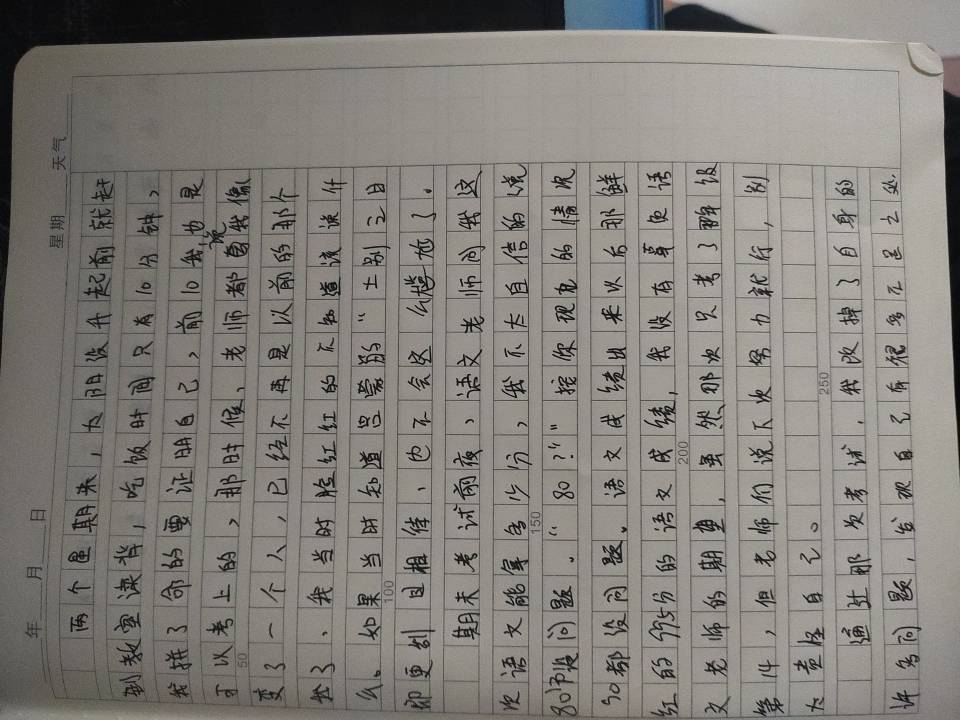 年 月 日 星期 天气
两个星期来，太阳没升起前就赶
到教室读背，吃饭时间只有10分钟，
我拼了命的要证明自己，前10我也是
可以考上的，那时候，老师都夸我像
50
变了一个人，已经不再是以前的那个
我了，我当时脸红红的不知道该说什
么。如果当时知道吕蒙的“士别三日
100
即更刮目相待，也不会这么尴尬了。
期末考试前夜，语文老师问我这
次语文能得多少分，我不太自信的说
150
80没问题。“80？”“按你现在的情况
90都没问题。语文成绩出来以后那鲜
红的99.5分的语文成绩，我没有辜负语
200
文老师的期望，虽然那次只考了年级
第14，但老师们说下次努力就行，别
太责怪自己。
250
通过那次考试，我改掉了自身的
许多问题，发现自己有很多不足之处